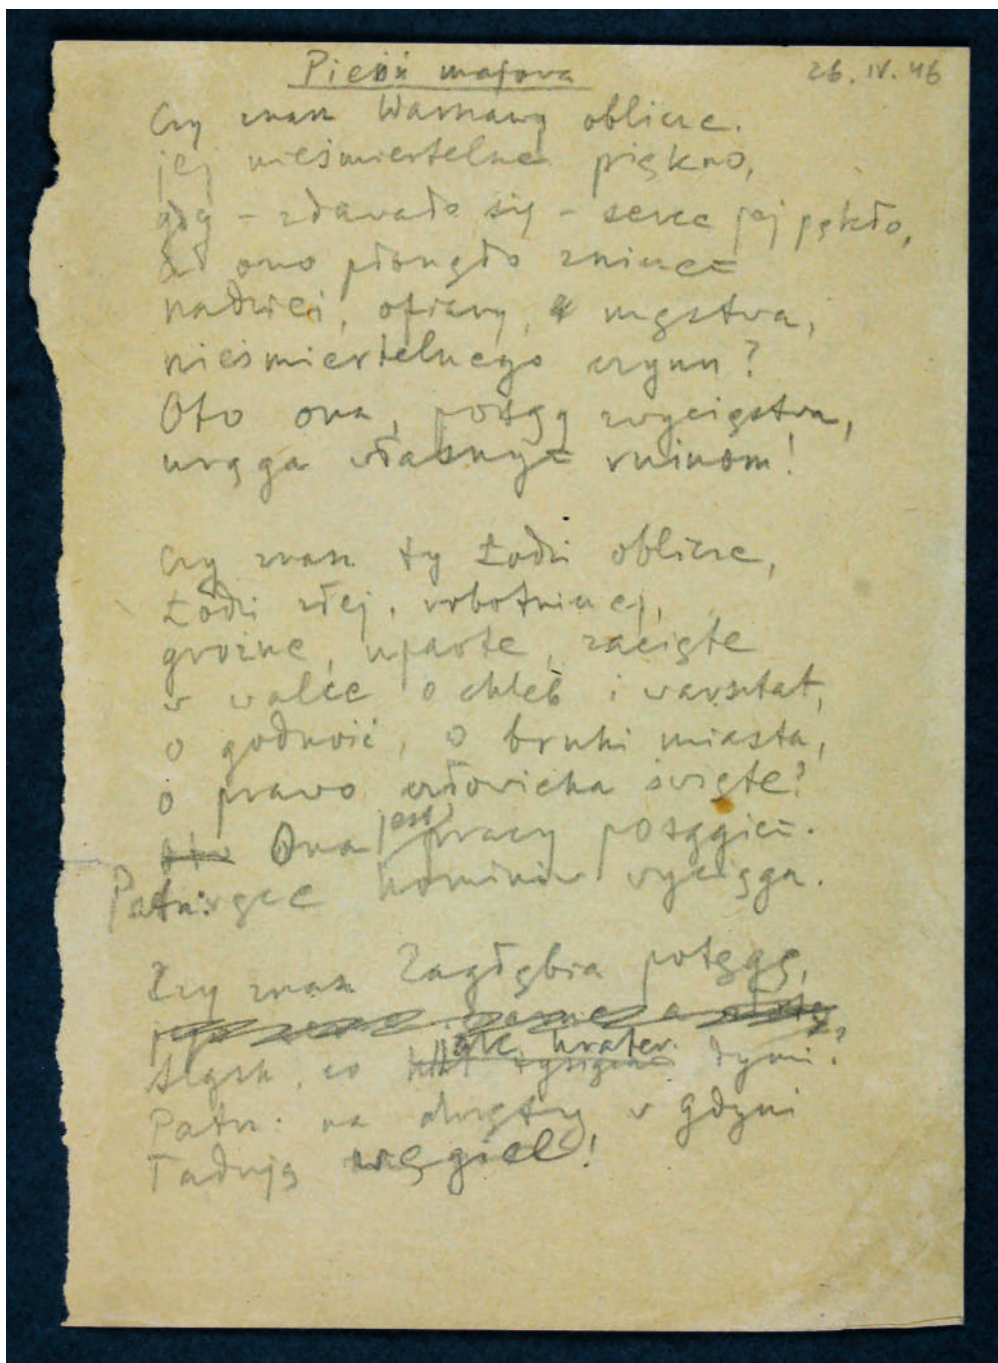 Pieśń majowa
26. IV. 46
Czy znasz Warszawy oblicze.
jej nieśmiertelne piękno,
gdy – zdawało się – serce jej pękło,
a ono płonęło zniczem
nadziei, ofiary, męstwa,
nieśmiertelnego czynu?
Oto ona, potęgą zwycięstwa,
urąga własnym ruinom!
Czy znasz ty Łodzi oblicze,
Łodzi złej, robotniczej,
groźne, uparte, zacięte
w walce o chleb i warsztat,
o godność, o bruki miasta,
o prawo człowieka święte?
Ona jest pracy posągiem.
Patrz: ręce kominów wyciąga.
Czy znasz Zagłębia potęgę,
Śląsk, co jak krater dymi?
Patrz: na okręty w Gdyni
Ładują węgiel!